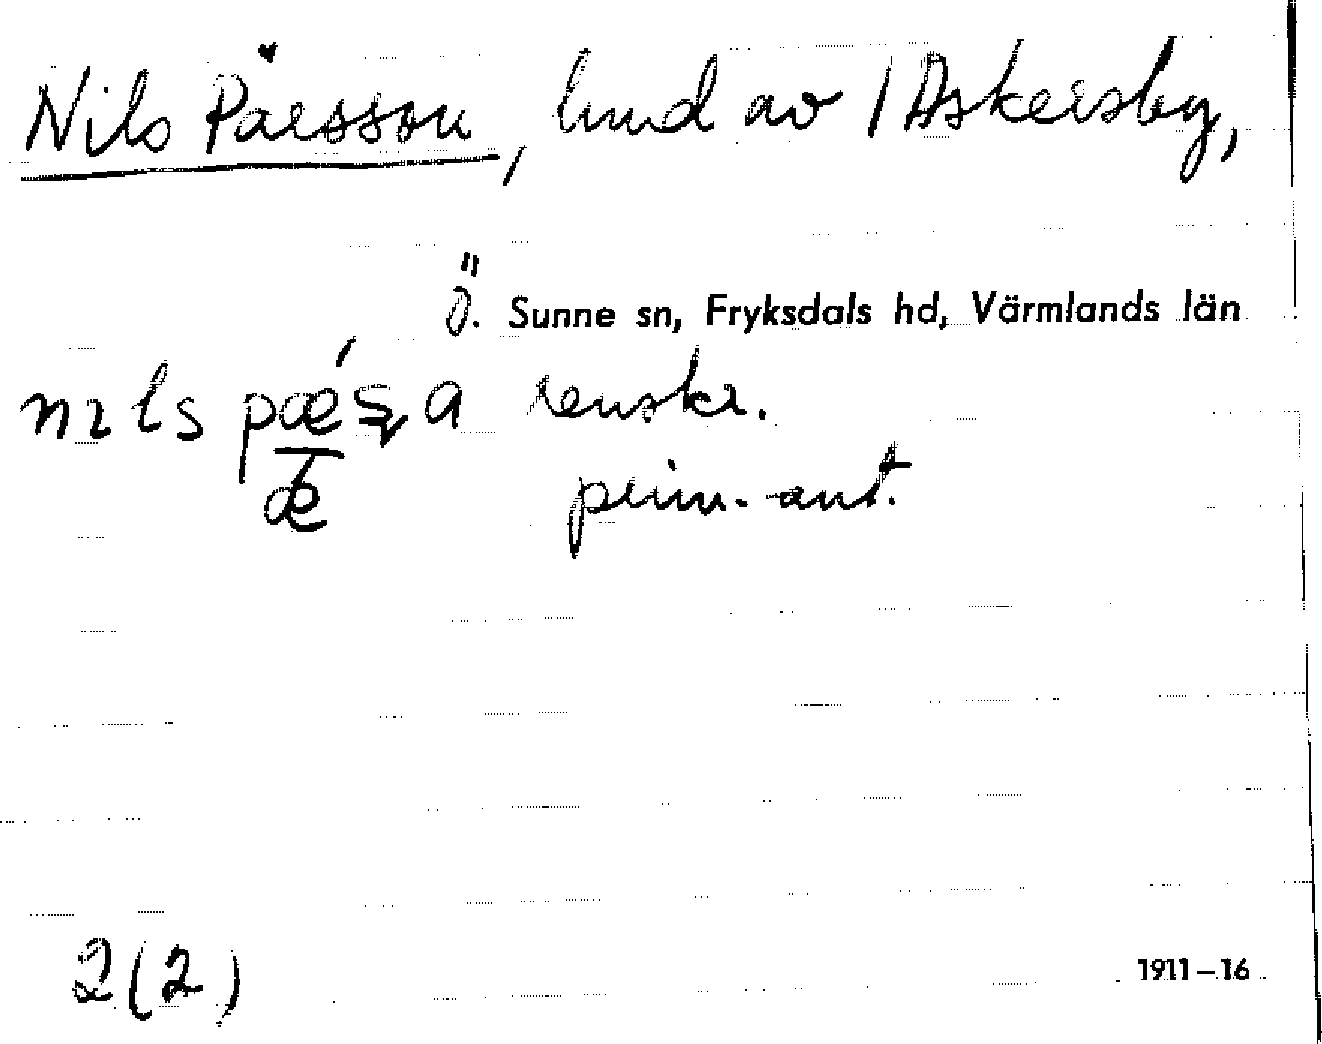 Nils Pärsson, hmd av 1 Askersby,
Ö. Sunne sn, Fryksdals hd, Värmlands län
nɪls pǽʂa renskr.
æ̅ prim.-ant.
2(2)
1911–16